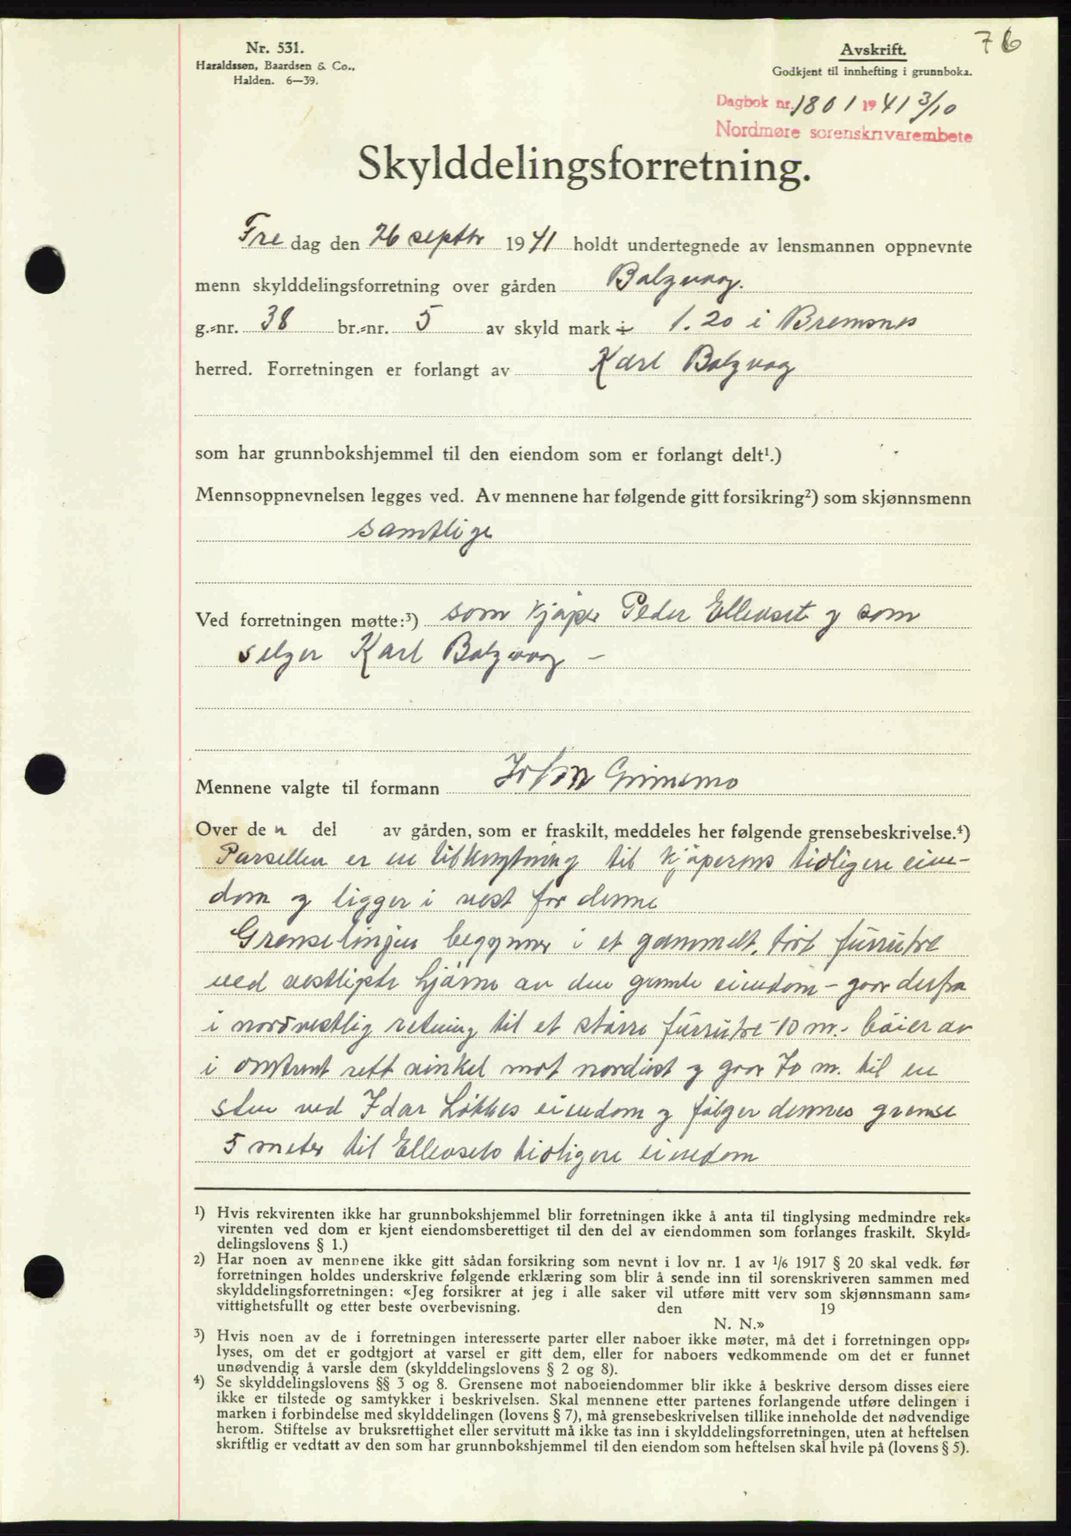 76
Nr. 531.
Haraldssøn, Baardsen & Co.,
Halden. 6—39.
Avskrift.
Godkjent til innhefting i grunnboka.
Dagbok nr. 1801 1941 3/10
Nordmøre sorenskrivarembete
Skylddelingsforretning.
Fre dag den 26 septbr 1941 holdt undertegnede av lensmannen oppnevnte
menn skylddelingsforretning over gården Bolgvag.
g.-nr. 38 br.-nr. 5 av skyld mark i 1.20 i Bremsnes
herred. Forretningen er forlangt av Karl Bolgvag
som har grunnbokshjemmel til den eiendom som er forlangt delt¹.)
Mennsoppnevnelsen legges ved. Av mennene har følgende gitt forsikring²) som skjønnsmenn
samtlige
Ved forretningen møtte:³) som kjøper Peder Ellevset og som
selger Karl Bolgvag –
Mennene valgte til formann John Grimsmo
Over de n del av gården, som er fraskilt, meddeles her følgende grensebeskrivelse.⁴)
Parsellen er en tilknytning til kjøperens tidligere eien-
dom og ligger i vest for denne
Grenselinjen begynner i et gammelt, tørt furrutre
ved vestligste hjørne av den gamle eiendom – gaar derfra
i nordvestlig retning til et større furrutre - 10 m. - bøier av
i omtrent rett vinkel mot nordøst og gaar 70 m. til en
sten ved Idar Løkkes eiendom og følger dennes grense
5 meter til Ellevsets tidligere eiendom
¹) Hvis rekvirenten ikke har grunnbokshjemmel blir forretningen ikke å anta til tinglysing medmindre rek-
virenten ved dom er kjent eiendomsberettiget til den del av eiendommen som forlanges fraskilt. Skyld-
delingslovens § 1.)
²) Har noen av mennene ikke gitt sådan forsikring som nevnt i lov nr. 1 av 1/6 1917 § 20 skal vedk. før
forretningen holdes underskrive følgende erklæring som blir å sende inn til sorenskriveren sammen med
skylddelingsforretningen: «Jeg forsikrer at jeg i alle saker vil utføre mitt verv som skjønnsmann sam-
vittighetsfullt og etter beste overbevisning. den 19
N. N.»
³) Hvis noen av de i forretningen interesserte parter eller naboer ikke møter, må det i forretningen opp-
lyses, om det er godtgjort at varsel er gitt dem, eller for naboers vedkommende om det er funnet
unødvendig å varsle dem (skylddelingslovens § 2 og 8).
⁴) Se skylddelingslovens §§ 3 og 8. Grensene mot naboeiendommer blir ikke å beskrive dersom disses eiere
ikke er tilstede og samtykker i beskrivelsen. Skal mennene etter partenes forlangende utføre delingen i
marken i forbindelse med skylddelingen (lovens § 7), må grensebeskrivelsen tillike inneholde det nødvendige
herom. Stiftelse av bruksrettighet eller servitutt må ikke tas inn i skylddelingsforretningen, uten at heftelsen
skriftlig er vedtatt av den som har grunnbokshjemmel til den eiendom som heftelsen skal hvile på (lovens § 5).